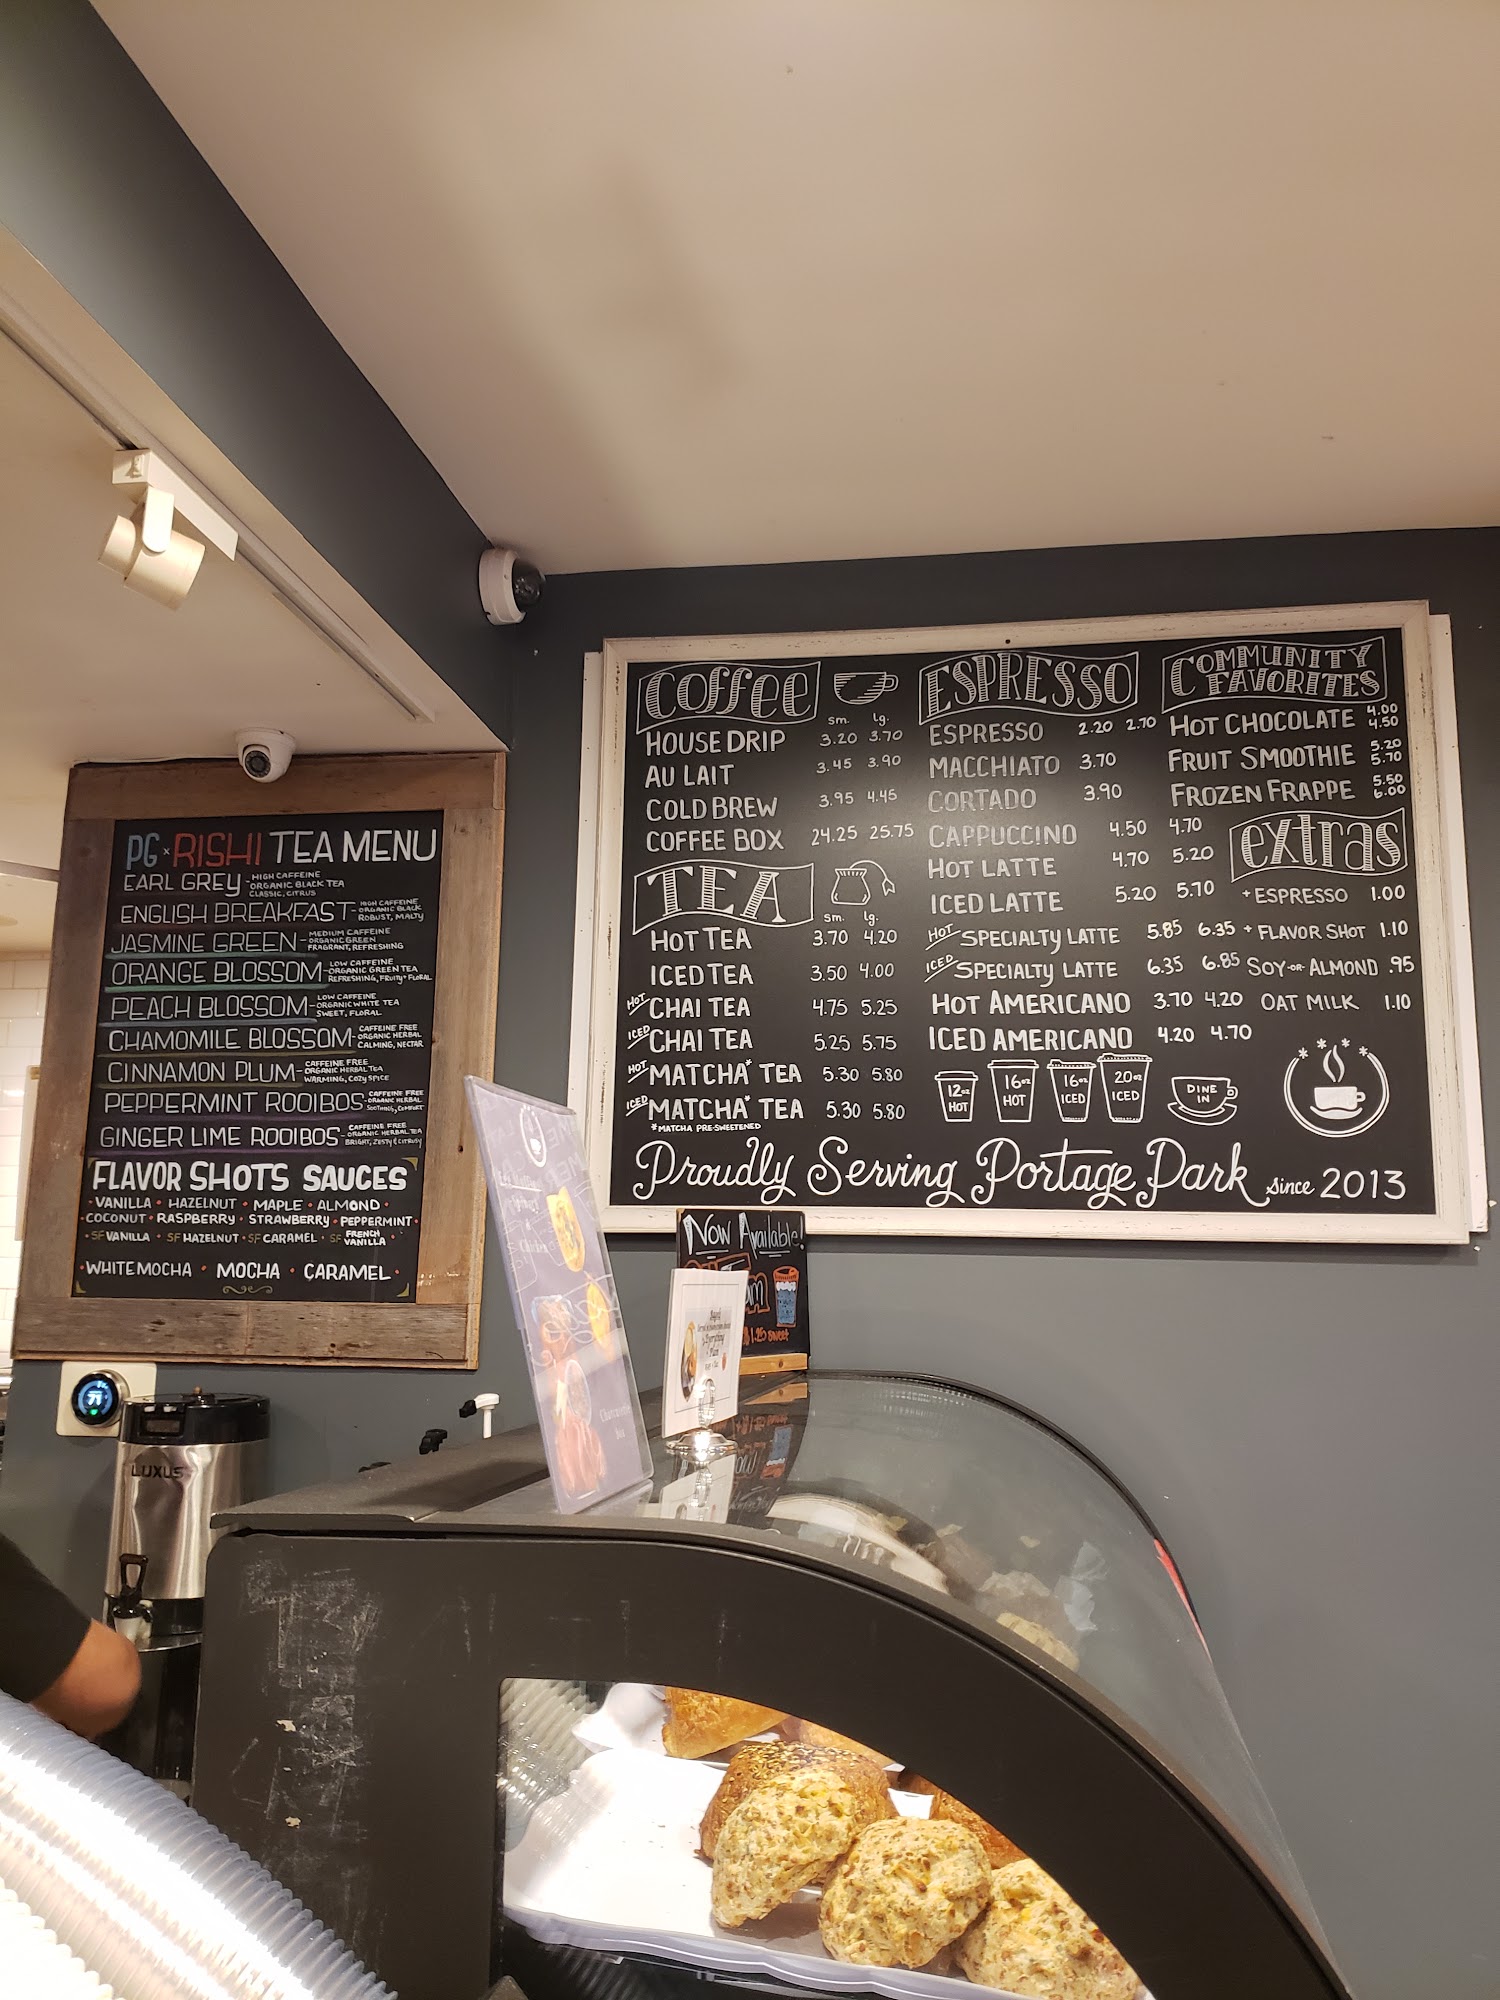 PG × RISHI TEA MENU
EARL GREY - HIGH CAFFEINE
- ORGANIC BLACK TEA
CLASSIC, CITRUS
ENGLISH BREAKFAST - HIGH CAFFEINE
- ORGANIC BLACK
ROBUST, MALTY
JASMINE GREEN - MEDIUM CAFFEINE
- ORGANIC GREEN
FRAGRANT, REFRESHING
ORANGE BLOSSOM - LOW CAFFEINE
- ORGANIC GREEN TEA
REFRESHING, FRUITY + FLORAL
PEACH BLOSSOM - LOW CAFFEINE
- ORGANIC WHITE TEA
SWEET, FLORAL
CHAMOMILE BLOSSOM - CAFFEINE FREE
- ORGANIC HERBAL
CALMING, NECTAR
CINNAMON PLUM - CAFFEINE FREE
- ORGANIC HERBAL TEA
WARMING, COZY SPICE
PEPPERMINT ROOIBOS - CAFFEINE FREE
- ORGANIC HERBAL
SOOTHING, COMFORT
GINGER LIME ROOIBOS - CAFFEINE FREE
- ORGANIC HERBAL TEA
BRIGHT, ZESTY & CITRUSY
FLAVOR SHOTS SAUCES
• VANILLA • HAZELNUT • MAPLE • ALMOND •
• COCONUT • RASPBERRY • STRAWBERRY • PEPPERMINT •
• SF VANILLA • SF HAZELNUT • SF CARAMEL • SF FRENCH VANILLA •
• WHITE MOCHA • MOCHA • CARAMEL •
COFFEE
sm. lg.
HOUSE DRIP 3.20 3.70
AU LAIT 3.45 3.90
COLD BREW 3.95 4.45
COFFEE BOX 24.25 25.75
TEA
sm. lg.
HOT TEA 3.70 4.20
ICED TEA 3.50 4.00
HOT CHAI TEA 4.75 5.25
ICED CHAI TEA 5.25 5.75
HOT MATCHA* TEA 5.30 5.80
ICED MATCHA* TEA 5.30 5.80
*MATCHA PRE-SWEETENED
ESPRESSO
ESPRESSO 2.20 2.70
MACCHIATO 3.70
CORTADO 3.90
CAPPUCCINO 4.50 4.70
HOT LATTE 4.70 5.20
ICED LATTE 5.20 5.70
HOT SPECIALTY LATTE 5.85 6.35
ICED SPECIALTY LATTE 6.35 6.85
HOT AMERICANO 3.70 4.20
ICED AMERICANO 4.20 4.70
12oz HOT
16oz HOT
16oz ICED
20oz ICED
DINE IN
COMMUNITY FAVORITES
HOT CHOCOLATE 4.00 4.50
FRUIT SMOOTHIE 5.20 5.70
FROZEN FRAPPE 5.50 6.00
extras
+ ESPRESSO 1.00
+ FLAVOR SHOT 1.10
SOY -OR- ALMOND .95
OAT MILK 1.10
Proudly Serving Portage Park since 2013
Now Available!
1.25 sweet
Everything
Plain
71
LUXUS